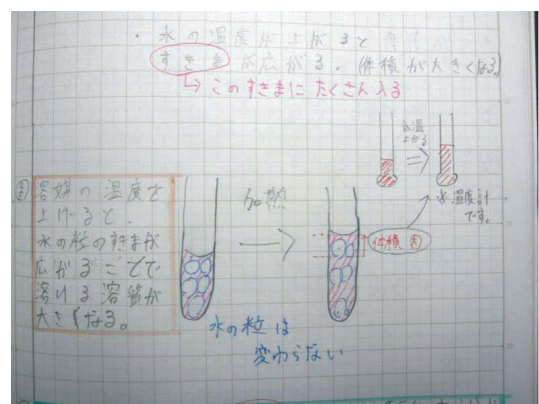 ・水の温度が上がると
すきまが広がる。(体積が大きくなる。)
↳このすきまにたくさん入る
気温
上がる
ま
溶媒の温度を
上げると、
水の粒のすきまが
広がることで
溶ける溶質が
大きくなる。
加熱
体積 大
※温度計
です。
水の粒は
変わらない